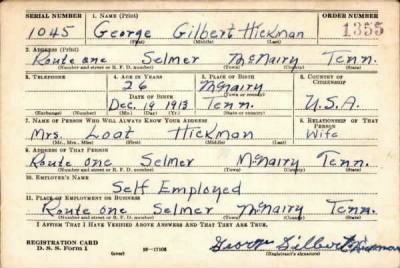 SERIAL NUMBER 1. NAME (Print) ORDER NUMBER
1045 George Gilbert Hickman 1355
(First) (Middle) (Last)
2. ADDRESS (Print)
Route one Selmer McNairy Tenn.
(Number and street or R. F. D. number) (Town) (County) (State)
3. TELEPHONE 4. AGE IN YEARS 5. PLACE OF BIRTH 6. COUNTRY OF CITIZENSHIP
26 McNairy
DATE OF BIRTH (Town or county)
Dec. 19 1913 Tenn. U.S.A.
(Exchange) (Number) (Mo.) (Day) (Yr.) (State or country)
7. NAME OF PERSON WHO WILL ALWAYS KNOW YOUR ADDRESS 8. RELATIONSHIP OF THAT PERSON
Mrs. Loat Hickman Wife
(Mr., Mrs., Miss) (First) (Middle) (Last)
9. ADDRESS OF THAT PERSON
Route one Selmer McNairy Tenn.
(Number and street or R. F. D. number) (Town) (County) (State)
10. EMPLOYER'S NAME
Self Employed
11. PLACE OF EMPLOYMENT OR BUSINESS
Route one Selmer McNairy Tenn.
(Number and street or R. F. D. number) (Town) (County) (State)
I AFFIRM THAT I HAVE VERIFIED ABOVE ANSWERS AND THAT THEY ARE TRUE.
REGISTRATION CARD George Gilbert Hickman
D. S. S. Form 1 (over) 16—17105 (Registrant's signature)